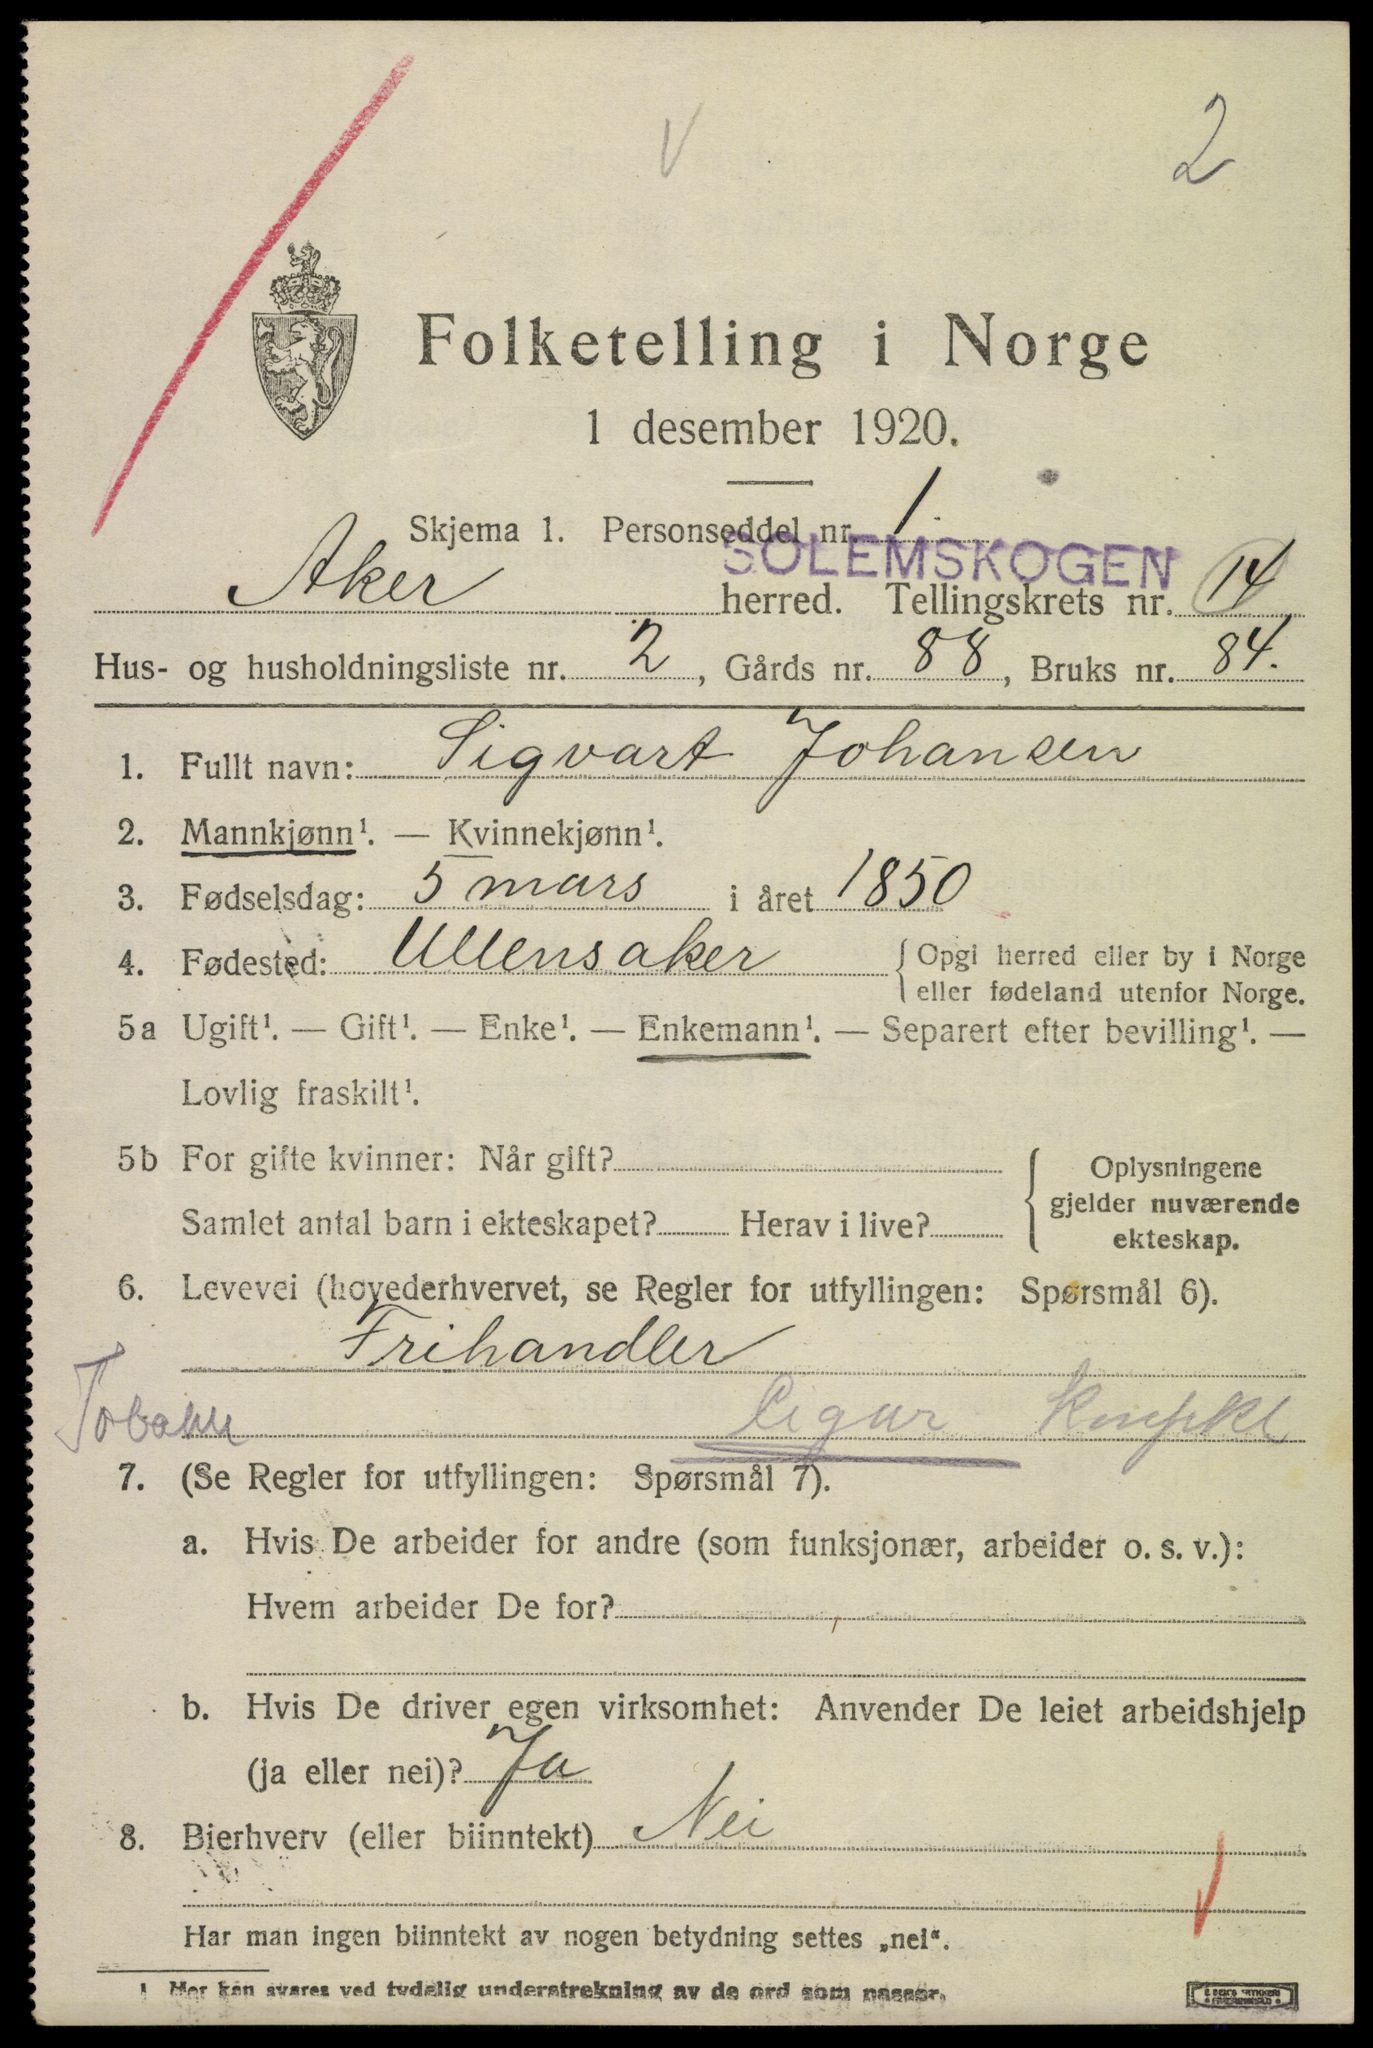 V
2
Folketelling i Norge
1 desember 1920.
Skjema 1. Personseddel nr. 1.
SOLEMSKOGEN
Aker herred. Tellingskrets nr. 14
Hus- og husholdningsliste nr. 2, Gårds nr. 88, Bruks nr. 84.
1. Fullt navn: Sigvart Johansen
2. Mannkjønn¹. — Kvinnekjønn¹.
3. Fødselsdag: 5 mars i året 1850
4. Fødested: Ullensaker { Opgi herred eller by i Norge
eller fødeland utenfor Norge.
5a Ugift¹. — Gift¹. — Enke¹. — Enkemann¹. — Separert efter bevilling¹. —
Lovlig fraskilt¹.
5b For gifte kvinner: Når gift?
Samlet antal barn i ekteskapet? Herav i live?
{ Oplysningene
gjelder nuværende
ekteskap.
6. Levevei (hovederhvervet, se Regler for utfyllingen: Spørsmål 6).
Frihandler
Sigar
7. (Se Regler for utfyllingen: Spørsmål 7).
a. Hvis De arbeider for andre (som funksjonær, arbeider o. s. v.):
Hvem arbeider De for?
b. Hvis De driver egen virksomhet: Anvender De leiet arbeidshjelp
(ja eller nei)? Ja
8. Bierhverv (eller biinntekt) Nei
Har man ingen biinntekt av nogen betydning settes „nei“.
1 Her kan svares ved tydelig understrekning av de ord som passer.